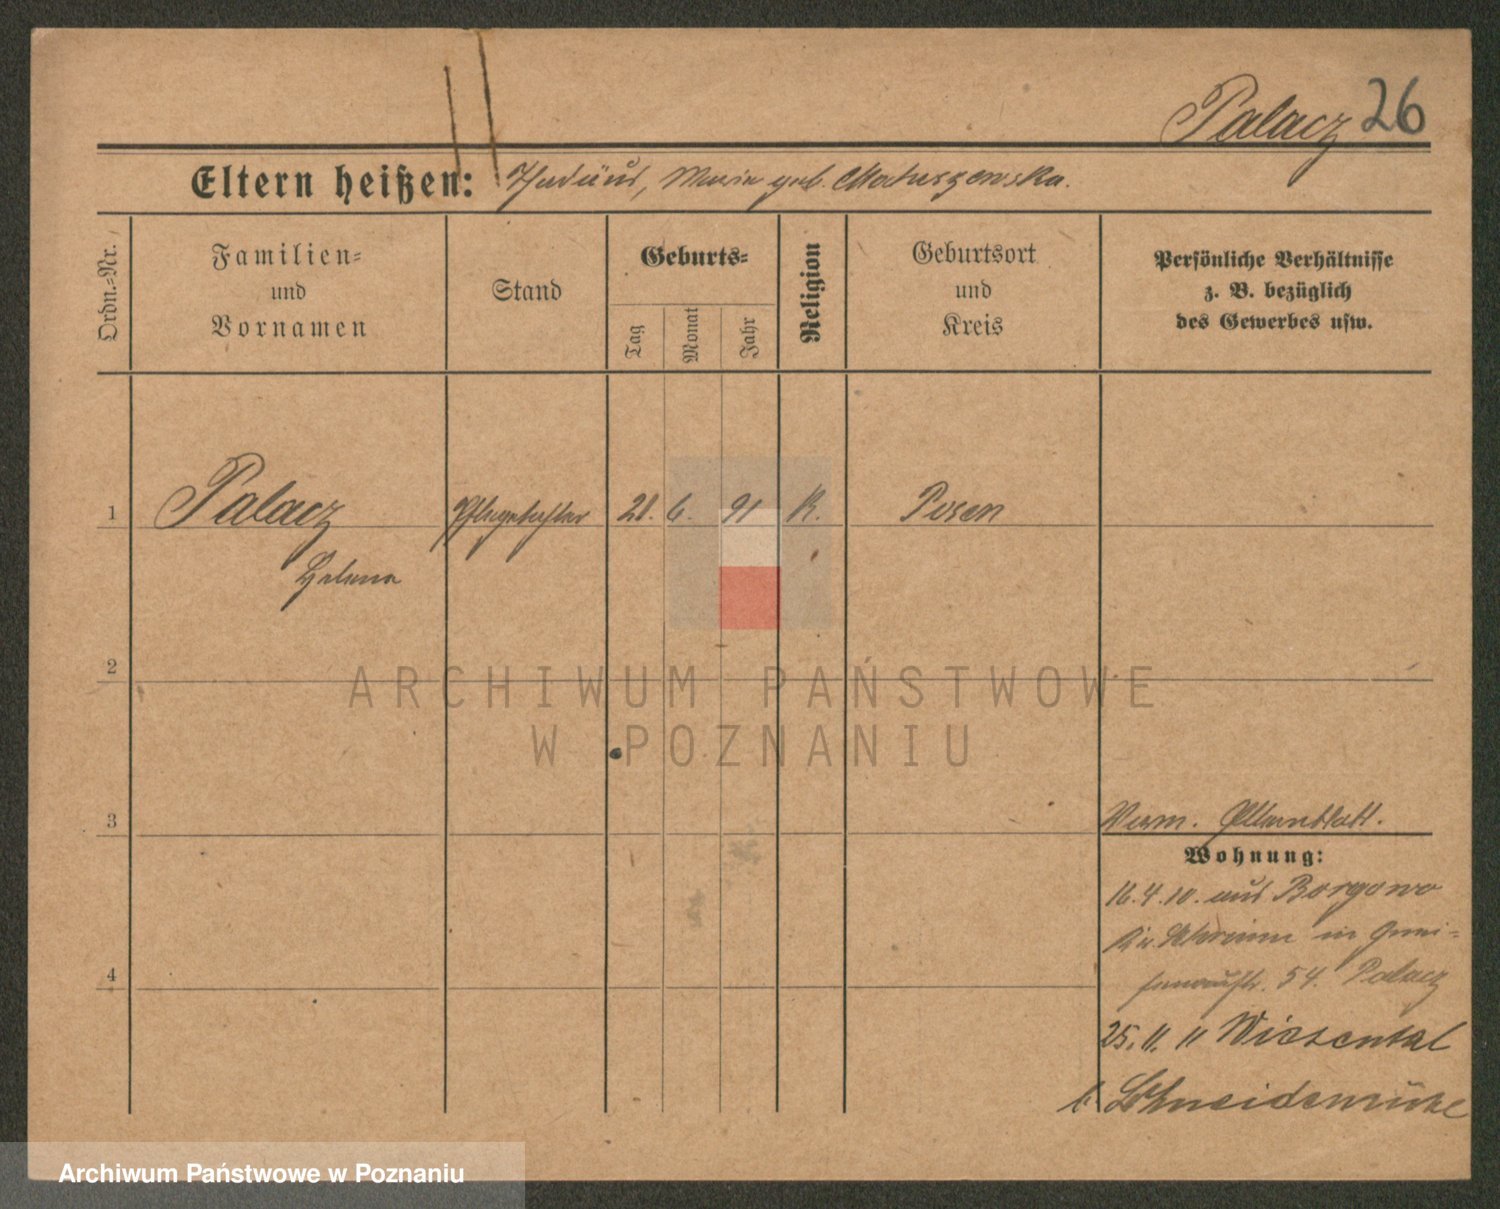 Palacz 26
Eltern heißen: Maria geb. Matuszewska.
Ordn.-Nr.
Familien-
und
Vornamen
Stand
Geburts-
Tag
Monat
Jahr
Religion
Geburtsort
und
Kreis
Persönliche Verhältnisse
z. B. bezüglich
des Gewerbes usw.
1 Palacz 6. 91 K. Posen
Helena
2
ARCHIWUM PAŃSTWOWE
W POZNANIU
3
Verm. Elternblatt.
Wohnung:
16.4.10. aus Borgowo
in
54. Palacz
4
25. 11. 11 Wiesental
b. Schneidemühl
Archiwum Państwowe w Poznaniu